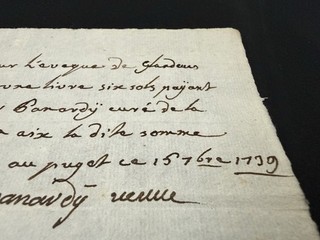 ur L'aveque de Glandeve
une livre six sols payant
Panardÿ curé de la
a aix la dite somme
au puget ce 15 7bre 1739
anardÿ veuve